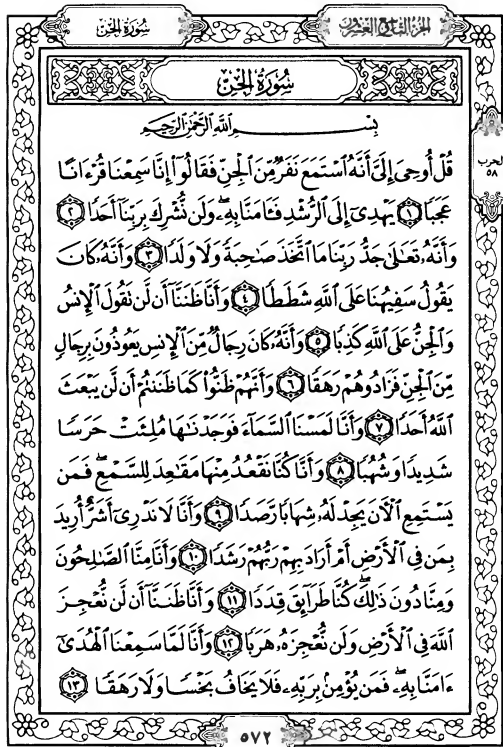 الجزء التاسع والعشرون
سُورَةُ الجِنّ
سُورَةُ الجِنّ
بِسْمِ ٱللَّهِ ٱلرَّحْمَٰنِ ٱلرَّحِيمِ
قُلْ أُوحِىَ إِلَىَّ أَنَّهُ ٱسْتَمَعَ نَفَرٌ مِّنَ ٱلْجِنِّ فَقَالُوٓا۟ إِنَّا سَمِعْنَا قُرْءَانًا
عَجَبًا ١ يَهْدِىٓ إِلَى ٱلرُّشْدِ فَـَٔامَنَّا بِهِۦ وَلَن نُّشْرِكَ بِرَبِّنَآ أَحَدًا ٢
وَأَنَّهُۥ تَعَٰلَىٰ جَدُّ رَبِّنَا مَا ٱتَّخَذَ صَٰحِبَةً وَلَا وَلَدًا ٣ وَأَنَّهُۥ كَانَ
يَقُولُ سَفِيهُنَا عَلَى ٱللَّهِ شَطَطًا ٤ وَأَنَّا ظَنَنَّآ أَن لَّن نَقُولَ ٱلْإِنسُ
وَٱلْجِنُّ عَلَى ٱللَّهِ كَذِبًا ٥ وَأَنَّهُۥ كَانَ رِجَالٌ مِّنَ ٱلْإِنسِ يَعُوذُونَ بِرِجَالٍ
مِّنَ ٱلْجِنِّ فَزَادُوهُمْ رَهَقًا ٦ وَأَنَّهُمْ ظَنُّوا۟ كَمَا ظَنَنتُمْ أَن لَّن يَبْعَثَ
ٱللَّهُ أَحَدًا ٧ وَأَنَّا لَمَسْنَا ٱلسَّمَآءَ فَوَجَدْنَٰهَا مُلِئَتْ حَرَسًا
شَدِيدًا وَشُهُبًا ٨ وَأَنَّا كُنَّا نَقْعُدُ مِنْهَا مَقَٰعِدَ لِلسَّمْعِ فَمَن
يَسْتَمِعِ ٱلْـَٔانَ يَجِدْ لَهُۥ شِهَابًا رَّصَدًا ٩ وَأَنَّا لَا نَدْرِىٓ أَشَرٌّ أُرِيدَ
بِمَن فِى ٱلْأَرْضِ أَمْ أَرَادَ بِهِمْ رَبُّهُمْ رَشَدًا ١٠ وَأَنَّا مِنَّا ٱلصَّٰلِحُونَ
وَمِنَّا دُونَ ذَٰلِكَ كُنَّا طَرَآئِقَ قِدَدًا ١١ وَأَنَّا ظَنَنَّآ أَن لَّن نُّعْجِزَ
ٱللَّهَ فِى ٱلْأَرْضِ وَلَن نُّعْجِزَهُۥ هَرَبًا ١٢ وَأَنَّا لَمَّا سَمِعْنَا ٱلْهُدَىٰٓ
ءَامَنَّا بِهِۦ فَمَن يُؤْمِنۢ بِرَبِّهِۦ فَلَا يَخَافُ بَخْسًا وَلَا رَهَقًا ١٣
الحزب
٥٨
٥٧٢